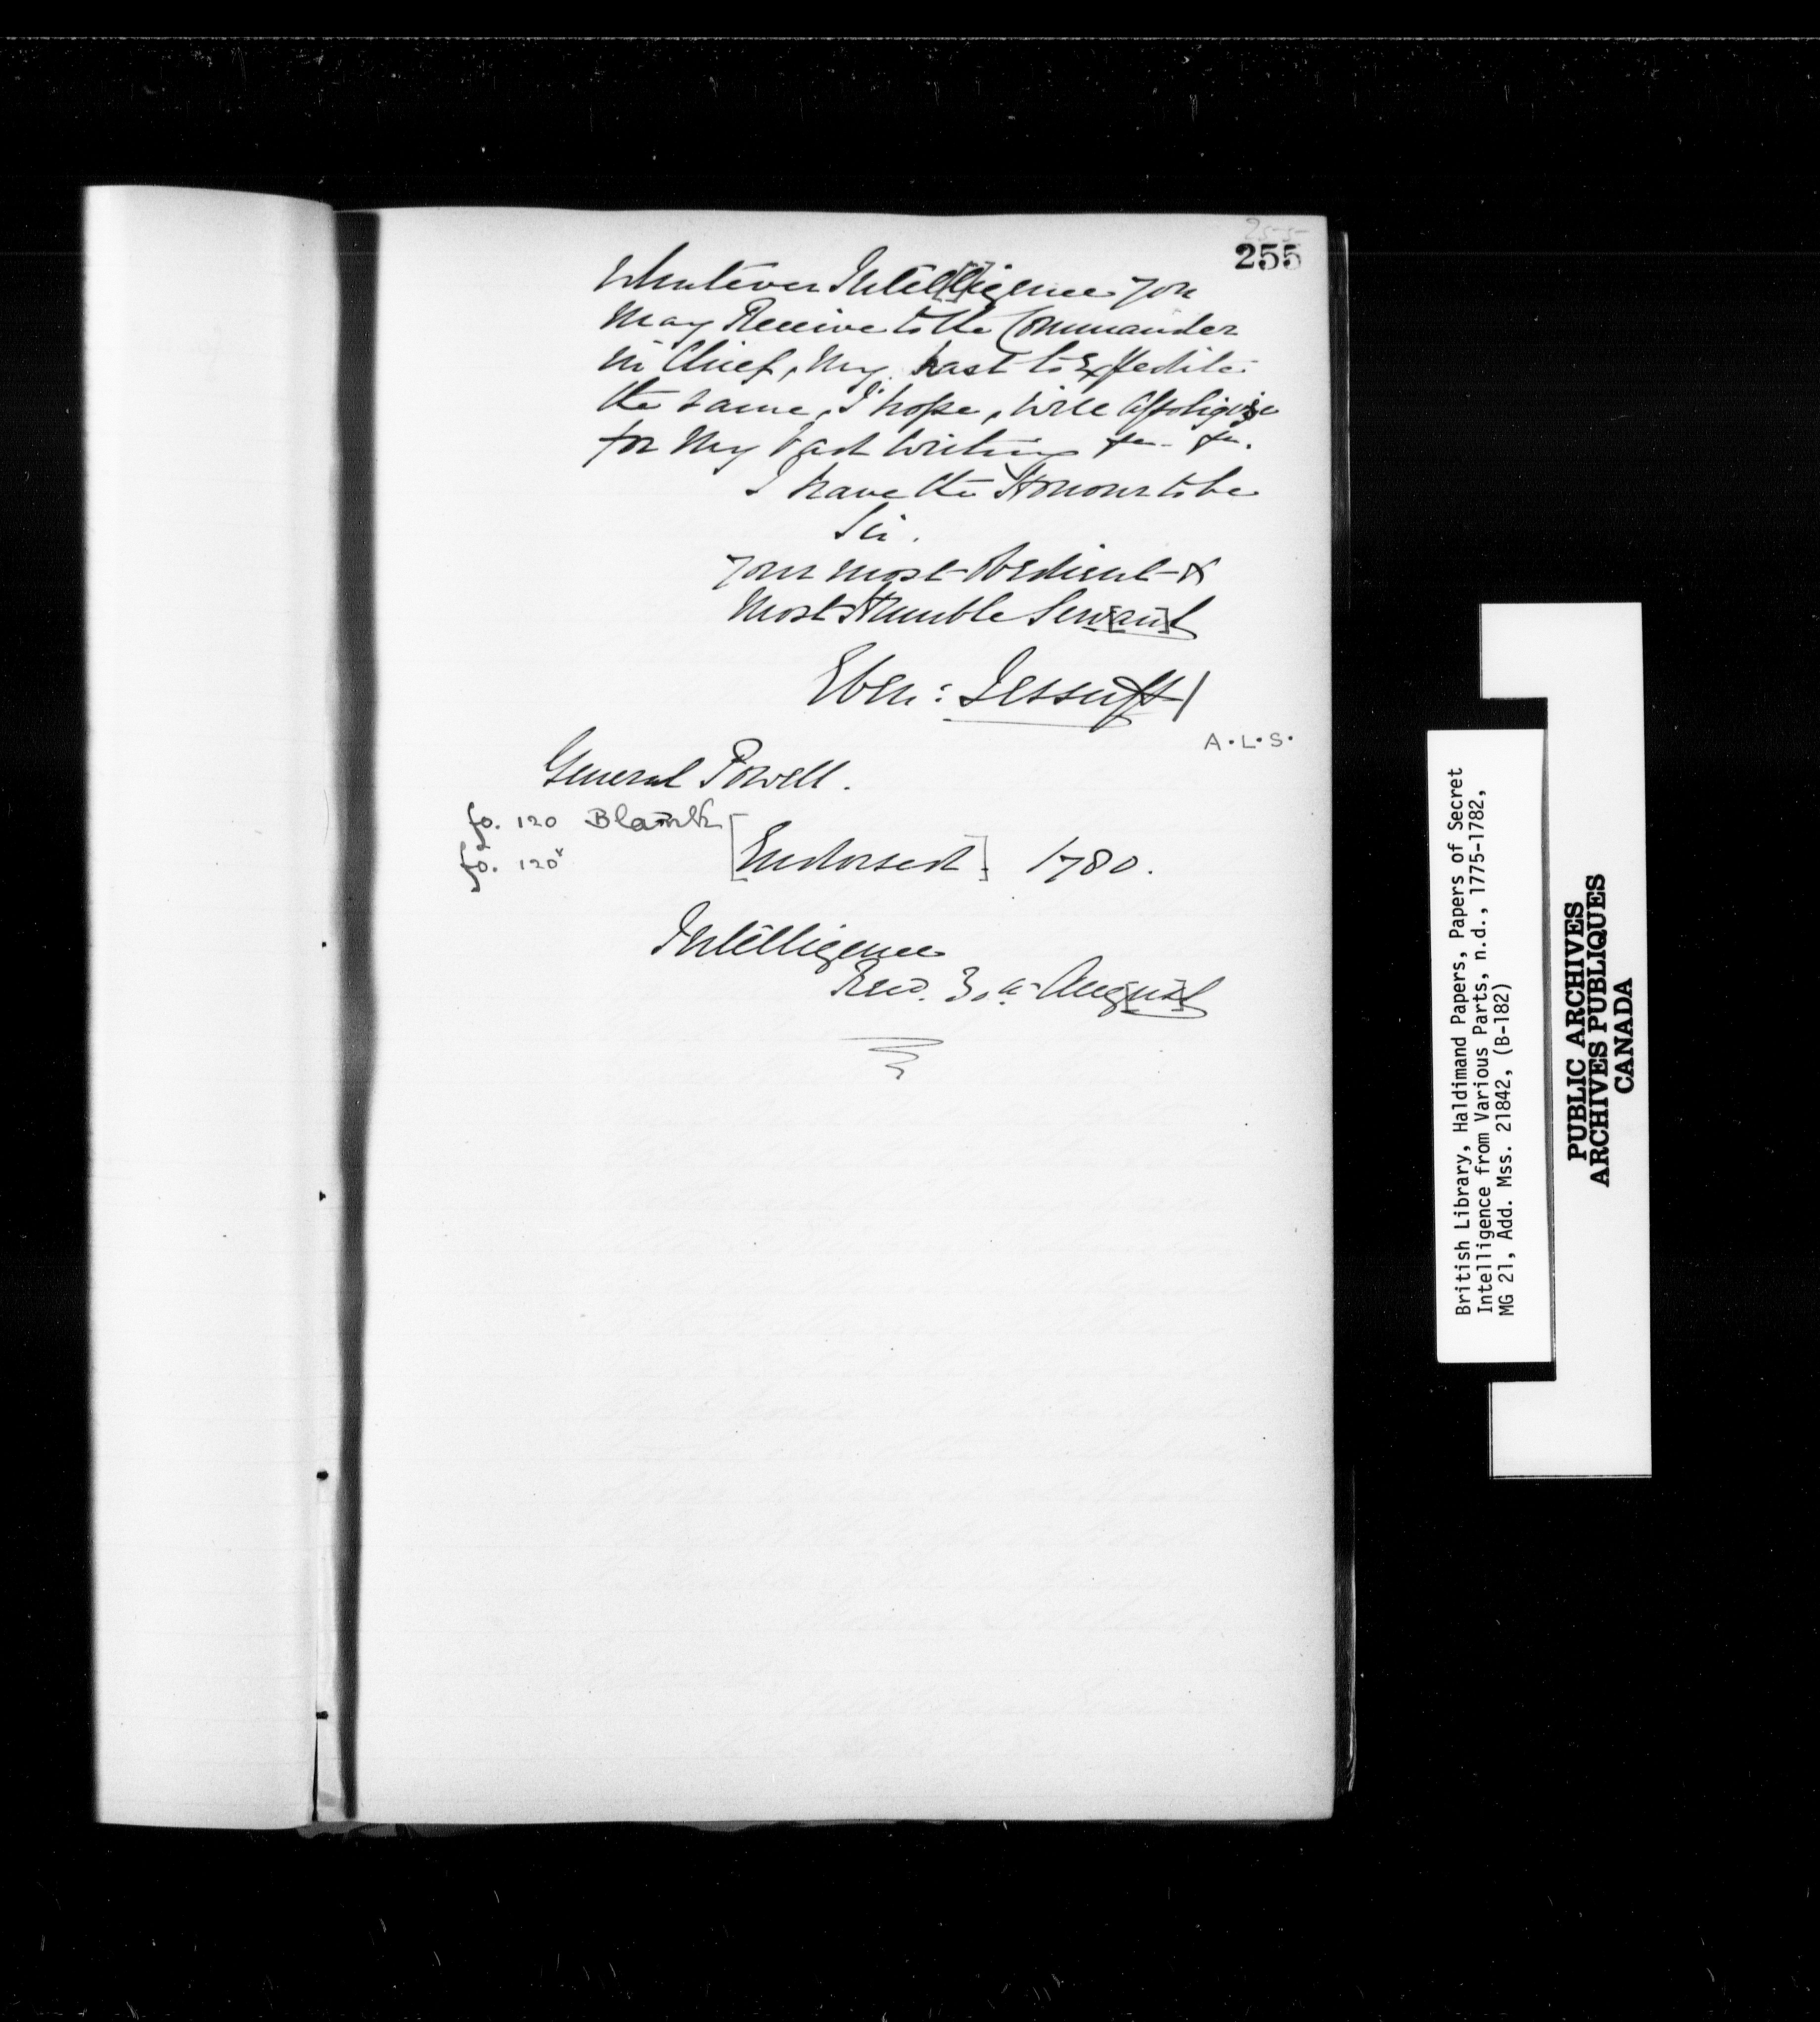 255
255
Whatever Intel[l]igence you
May Receive to the Commander
in Chief, My hast to Expedite
the same, I hope, will Appoligise
for My bad writing &c. &c.
I have the Honour to be
Sir.
Your most Obedient &
Most Humble Serv[an]t
Eben: Jessup /
A.L.S.
General Powell.
fo. 120 Blank
fo. 120v [Endorsed] 1780.
Intelligence
Recd. 30th August
British Library, Haldimand Papers, Papers of Secret
Intelligence from Various Parts, n.d., 1775-1782,
MG 21, Add. Mss. 21842, (B-182)
PUBLIC ARCHIVES
ARCHIVES PUBLIQUES
CANADA